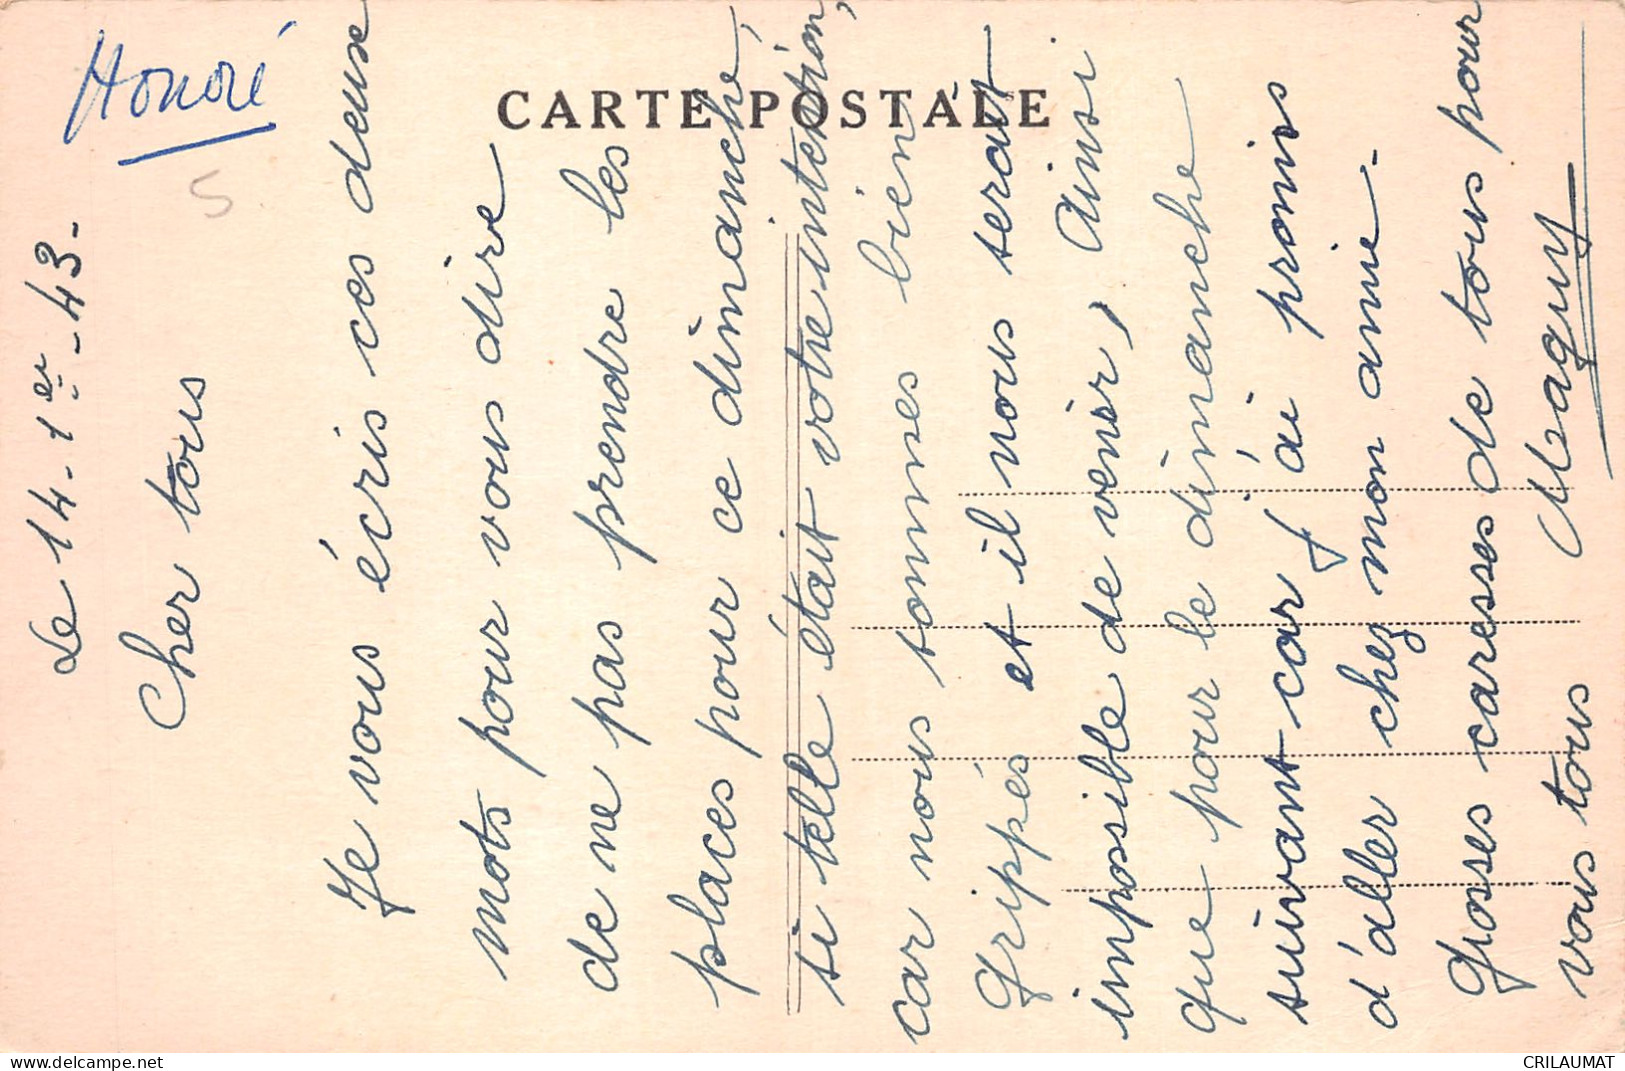 Honoré
CARTE POSTALE
5
Le 14-1er-43-
Cher tous
Je vous écris ces deux
mots pour vous dire
de ne pas prendre les
places pour ce dimanche
si telle était votre intention,
car nous sommes bien
Grippés et il nous serait
imposible de venir, Ainsi
que pour le dimanche
suivant car j'ai promis
d'aller chez mon amie-
Grosses caresses de tous pour
vous tous Maguy
delcampe.net
CRILAUMAT